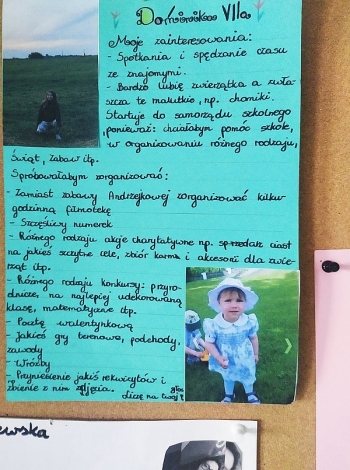 Dominika VIIa
Moje zainteresowania:
- Spotkania i spędzanie czasu
ze znajomymi.
- Bardzo lubię zwierzątka a zwła-
szcza te malutkie, np. chomiki.
Startuje do samorządu szkolnego
ponieważ: chciałabym pomóc szkole,
w organizowaniu różnego rodzaju,
świąt, zabaw itp.
Spróbowałabym zorganizować:
- Zamiast zabawy Andrzejkowej zorganizować kilku-
godzinną filmotekę
- Szczęśliwy numerek
- Różnego rodzaju akcje charytatywne np. sprzedaż ciast
na jakieś szczytne cele, zbiór karm i akcesorii dla zwie-
rząt itp.
- Różnego rodzaju konkursy: przyro-
dnicze, na najlepiej udekorowaną
klasę, matematyczne itp.
- Pocztę walentynkową
- Jakieś gry terenowe, podchody,
zawody
- Wróżby
- Przyniesienie jakiś rekwizytów i
zbienie z nim zdjęcia.
liczę na twój głos
ewska